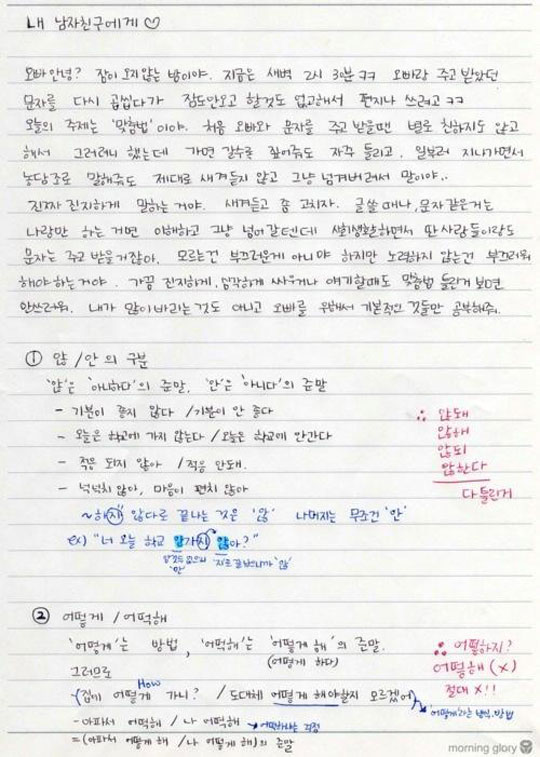 내 남자친구에게 ♡
오빠 안녕? 잠이 오지 않는 밤이야. 지금은 새벽 2시 30분 ㅋㅋ 오빠랑 주고 받았던
문자를 다시 곱씹다가 잠도안오고 할것도 없고해서 편지나 쓰려고 ㅋㅋ
오늘의 주제는 '맞춤법' 이야. 처음 오빠와 문자를 주고 받을땐 별로 친하지도 않고
해서 그러려니 했는데 가면 갈수록 짚어줘도 자주 틀리고, 일부러 지나가면서
농담조로 말해줘도 제대로 새겨듣지 않고 그냥 넘겨버려서 말이야..
진짜 진지하게 말하는 거야. 새겨듣고 좀 고치자. 글 쓸 때나, 문자 같은거는
나랑만 하는 거면 이해하고 그냥 넘어 갈텐데 사회생활하면서 딴 사람들이랑도
문자는 주고 받을거잖아. 모르는건 부끄러운게 아니야 하지만 노력하지 않는건 부끄러워
해야 하는거야. 가끔 진지하게, 심각하게 싸우거나 얘기할때도 맞춤법 틀린거 보면
안쓰러워. 내가 많이 바라는 것도 아니고 오빠를 위해서 기본적인 것들만 공부해줘.
① 않 / 안 의 구분
'않'은 '아니하다'의 준말, '안'은 '아니다'의 준말
- 기분이 좋지 않다 / 기분이 안 좋다
- 오늘은 학교에 가지 않는다 / 오늘은 학교에 안간다
- 적응 되지 않아 / 적응 안돼.
- 넉넉치 않아, 마음이 편치 않아
~해지 않다로 끝나는 것은 '않' 나머지는 무조건 '안'
ex) "너 오늘 학교 안가지 않아?"
앞것도 없으니 '안' '지'로 끝났으니까 '않'
∴ 않돼
않해
않되
않한다
다 틀린거
② 어떻게 / 어떡해
'어떻게'는 방법, '어떡해'는 '어떻게 해'의 준말.
(어떻게 하다)
그러므로
How
- (집에 어떻게 가니? / 도대체 어떻게 해야할지 모르겠어)
'어떻게'라는 방식, 방법
- 아파서 어떡해 / 나 어떡해 → 어떡하냐는 걱정
= (아파서 어떻게 해 / 나 어떻게 해)의 준말
∴ 어떡하지?
어떻해 (X)
절대 X!!
morning glory